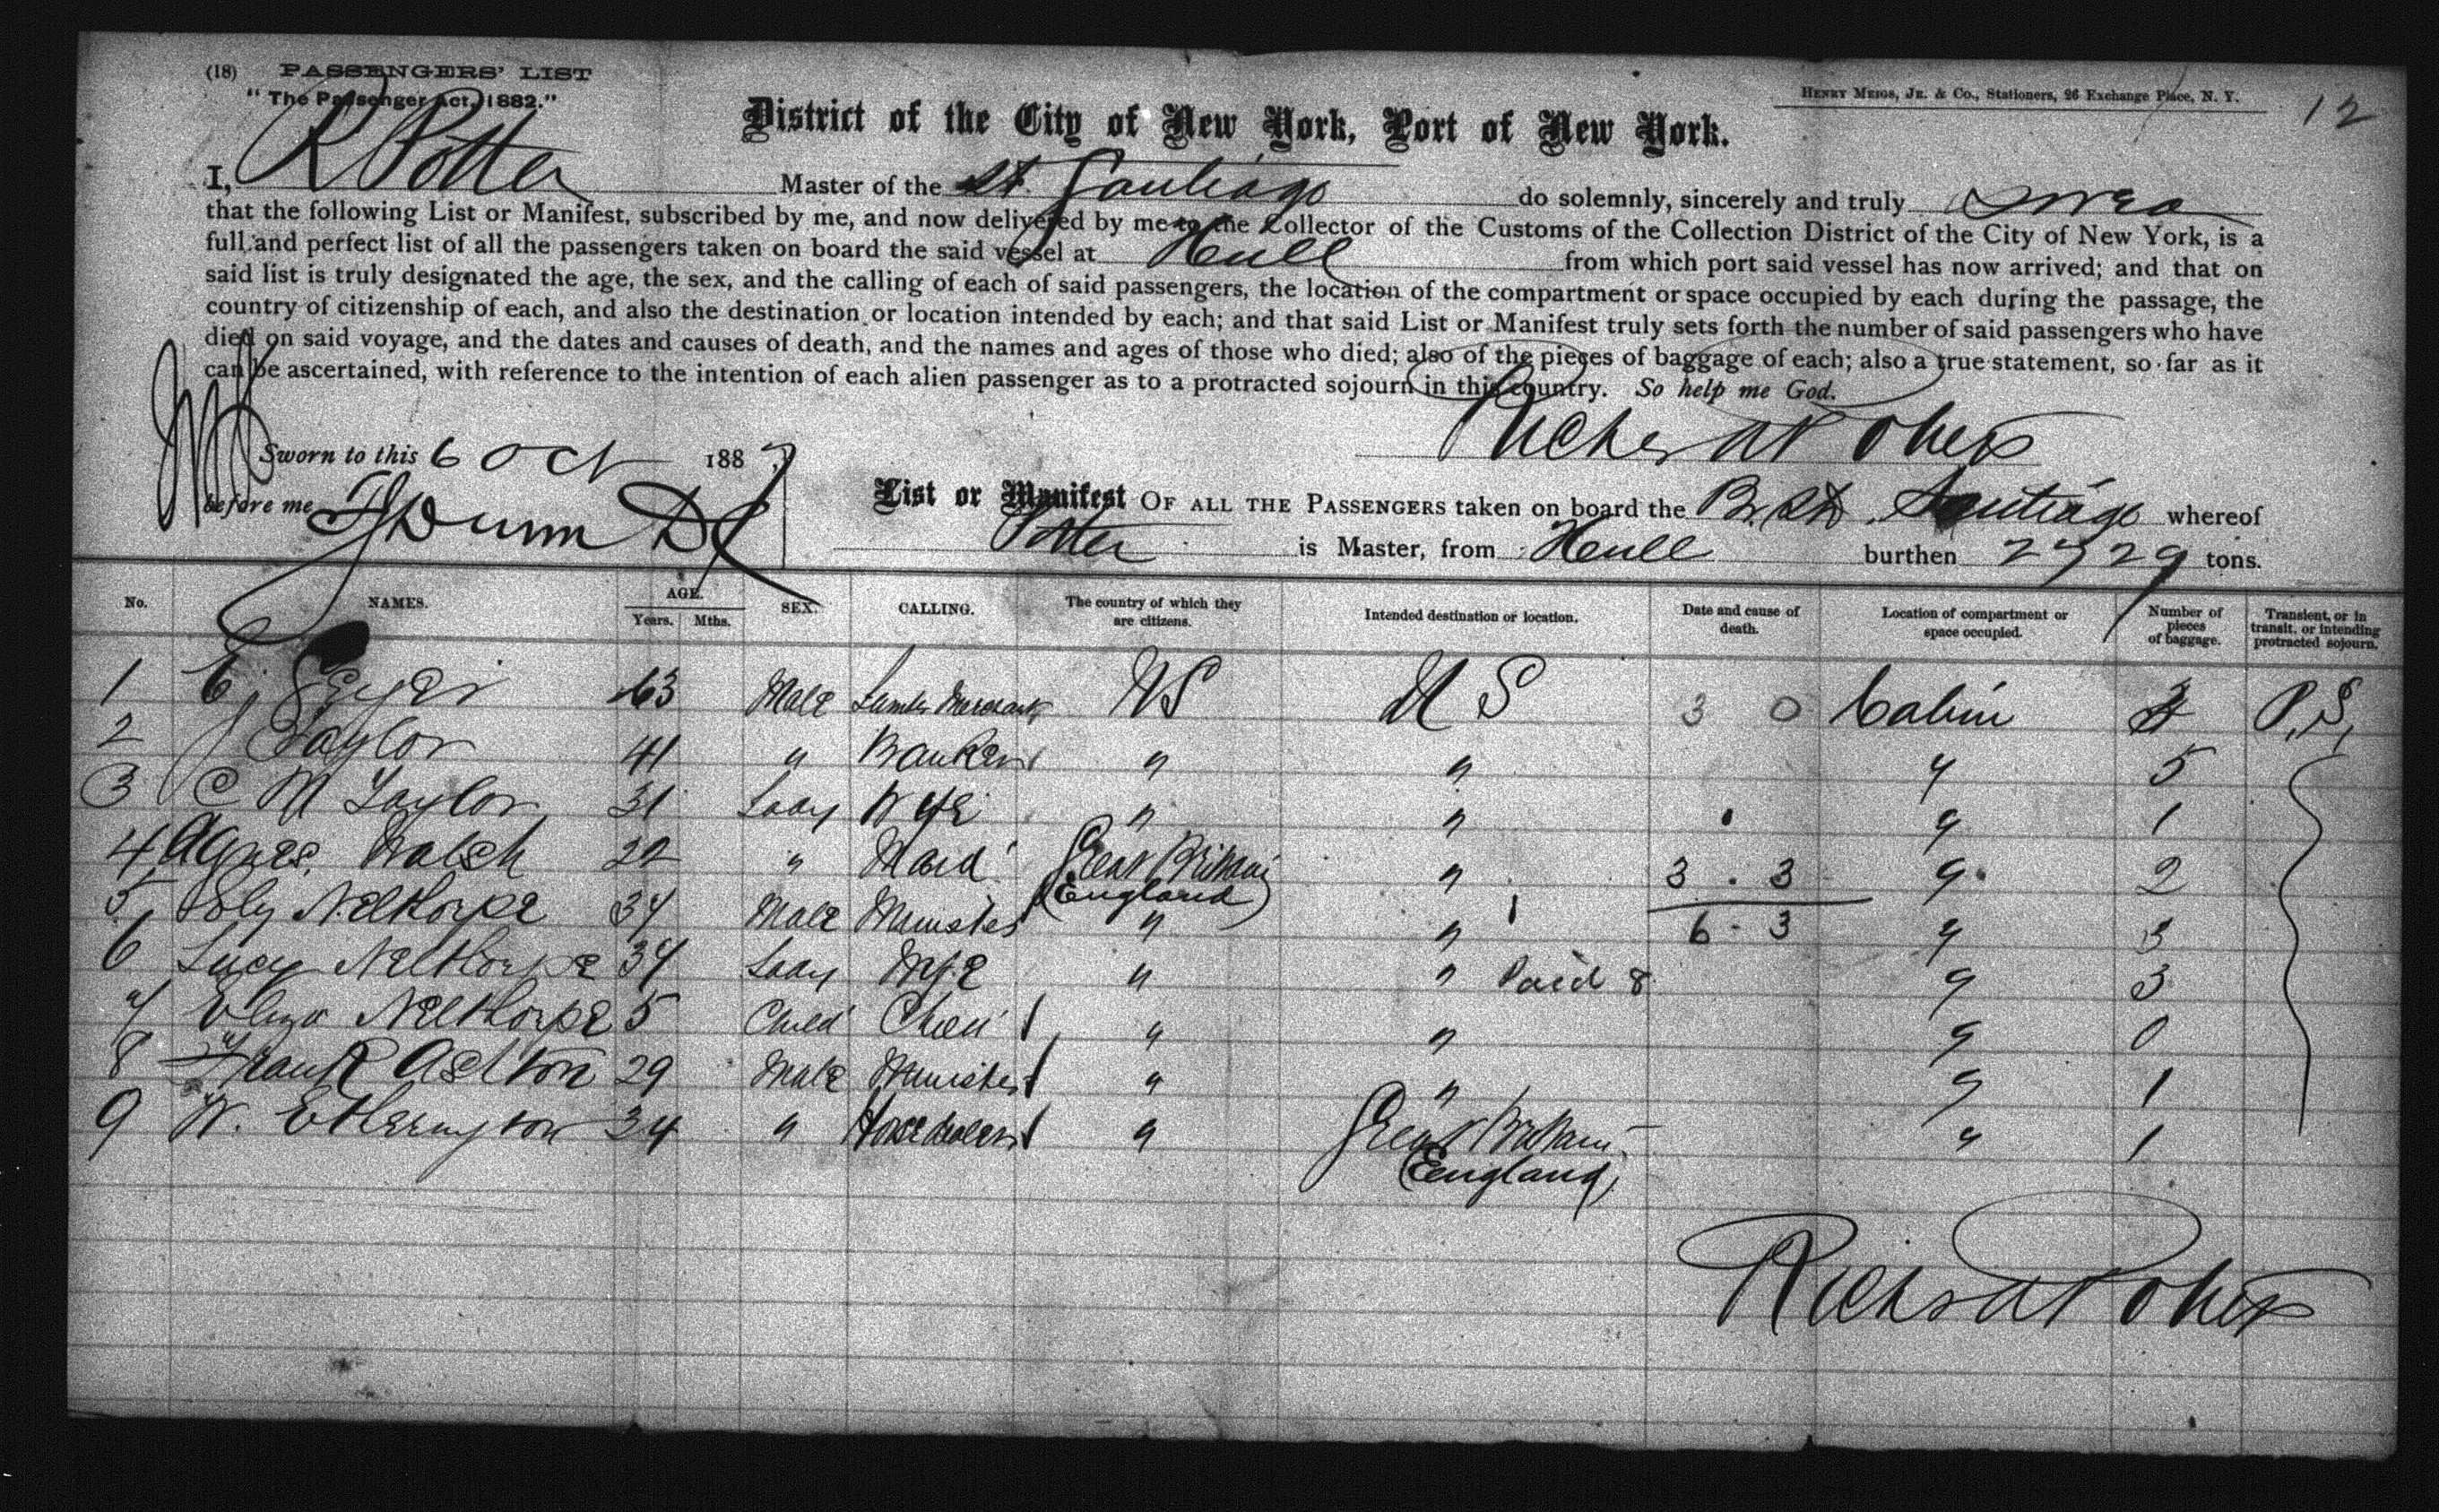 (18) PASSENGERS' LIST
"The Passenger Act, 1882."
HENRY MEIGS, JR. & CO., Stationers, 26 Exchange Place, N. Y.
12
District of the City of New York, Port of New York.
I, R Potter Master of the St. Santiago do solemnly, sincerely and truly swear
that the following List or Manifest, subscribed by me, and now delivered by me to the Collector of the Customs of the Collection District of the City of New York, is a
full and perfect list of all the passengers taken on board the said vessel at Hull from which port said vessel has now arrived; and that on
said list is truly designated the age, the sex, and the calling of each of said passengers, the location of the compartment or space occupied by each during the passage, the
country of citizenship of each, and also the destination or location intended by each; and that said List or Manifest truly sets forth the number of said passengers who have
died on said voyage, and the dates and causes of death, and the names and ages of those who died; also of the pieces of baggage of each; also a true statement, so far as it
can be ascertained, with reference to the intention of each alien passenger as to a protracted sojourn in this country. So help me God.
Sworn to this 6 Oct 1887
before me Dunn DC
List or Manifest OF ALL THE PASSENGERS taken on board the Br. St. Santiago whereof
Potter is Master, from Hull burthen 2729 tons.
No. NAMES. AGE. Years. Mths. SEX. CALLING. The country of which they are citizens. Intended destination or location. Date and cause of death. Location of compartment or space occupied. Number of pieces of baggage. Transient, or in transit, or intending protracted sojourn.
1 E. Geyer 63 Male Lumber Merchant US U S 3 0 Cabin 3 P.S.
2 J Taylor 41 " Banker " " " 5
3 C M Taylor 31 Lady Wife " " " 1
4 Agnes Walsh 22 " Maid Great Britain (England) " 3 . 3 " 2
5 Nelthorpe 34 Male Minister " " 6 - 3 " 3
6 Lucy Nelthorpe 34 Lady Wife " " Paid 8 " 3
7 Eliza Nelthorpe 5 Child Child " " " 0
8 Frank Ashton 29 Male Minister " " " 1
9 W. Etherington 34 " Horse dealer " Great Britain (England) " 1